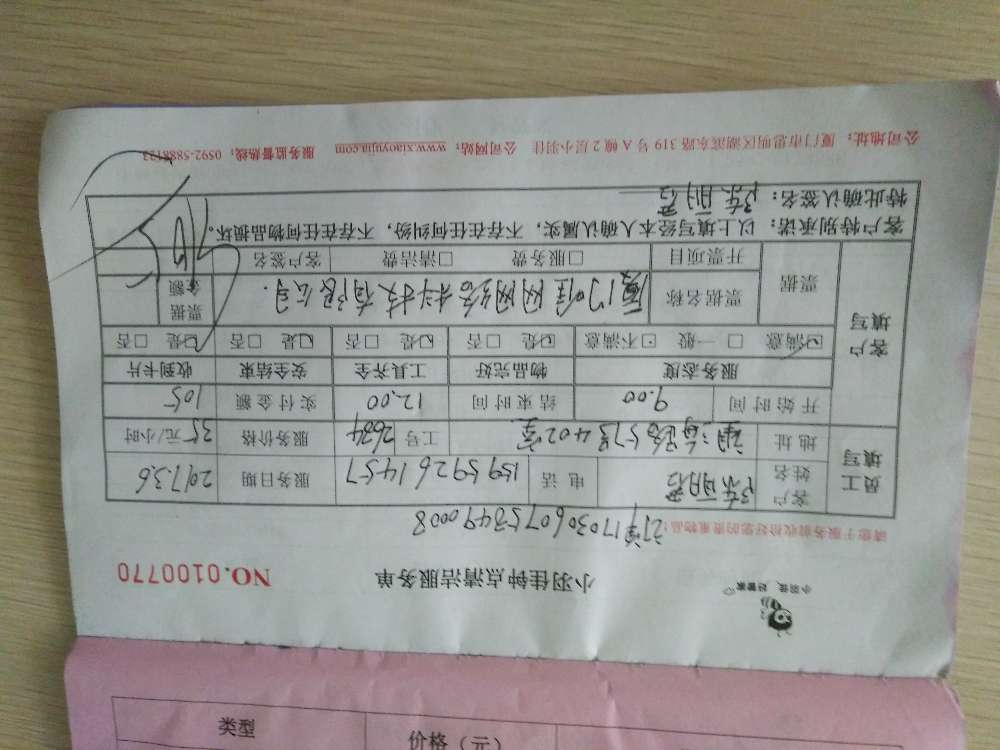 小羽佳，好管家
小羽佳钟点清洁服务单 NO.0100770
请您于服务前收拾好您的贵重物品！
订单170306075849008
员工填写 客户姓名 陈丽君 电话 15959261457 服务日期 2017.3.6
地址 湖滨 57号402室 工号 2684 服务价格 35元/小时
客户填写 开始时间 9.00 结束时间 12.00 实付金额 105
服务态度 物品完好 工具齐全 安全结束 收到卡片
☑满意 □一般 □不满意 ☑是 □否 ☑是 □否 ☑是 □否 ☑是 □否
票据 票据名称 厦门 网络科技有限公司. 票据金额
开票项目 □服务费 □清洁费 客户签名
客户特别承诺：以上填写经本人确认属实，不存在任何纠纷，不存在任何物品损坏。
特此确认签名：陈丽君
公司地址：厦门市思明区湖滨东路319号A幢2层小羽佳 公司网站：www.xiaoyujia.com 服务监督热线：0592-5888123
类型 价格（元）